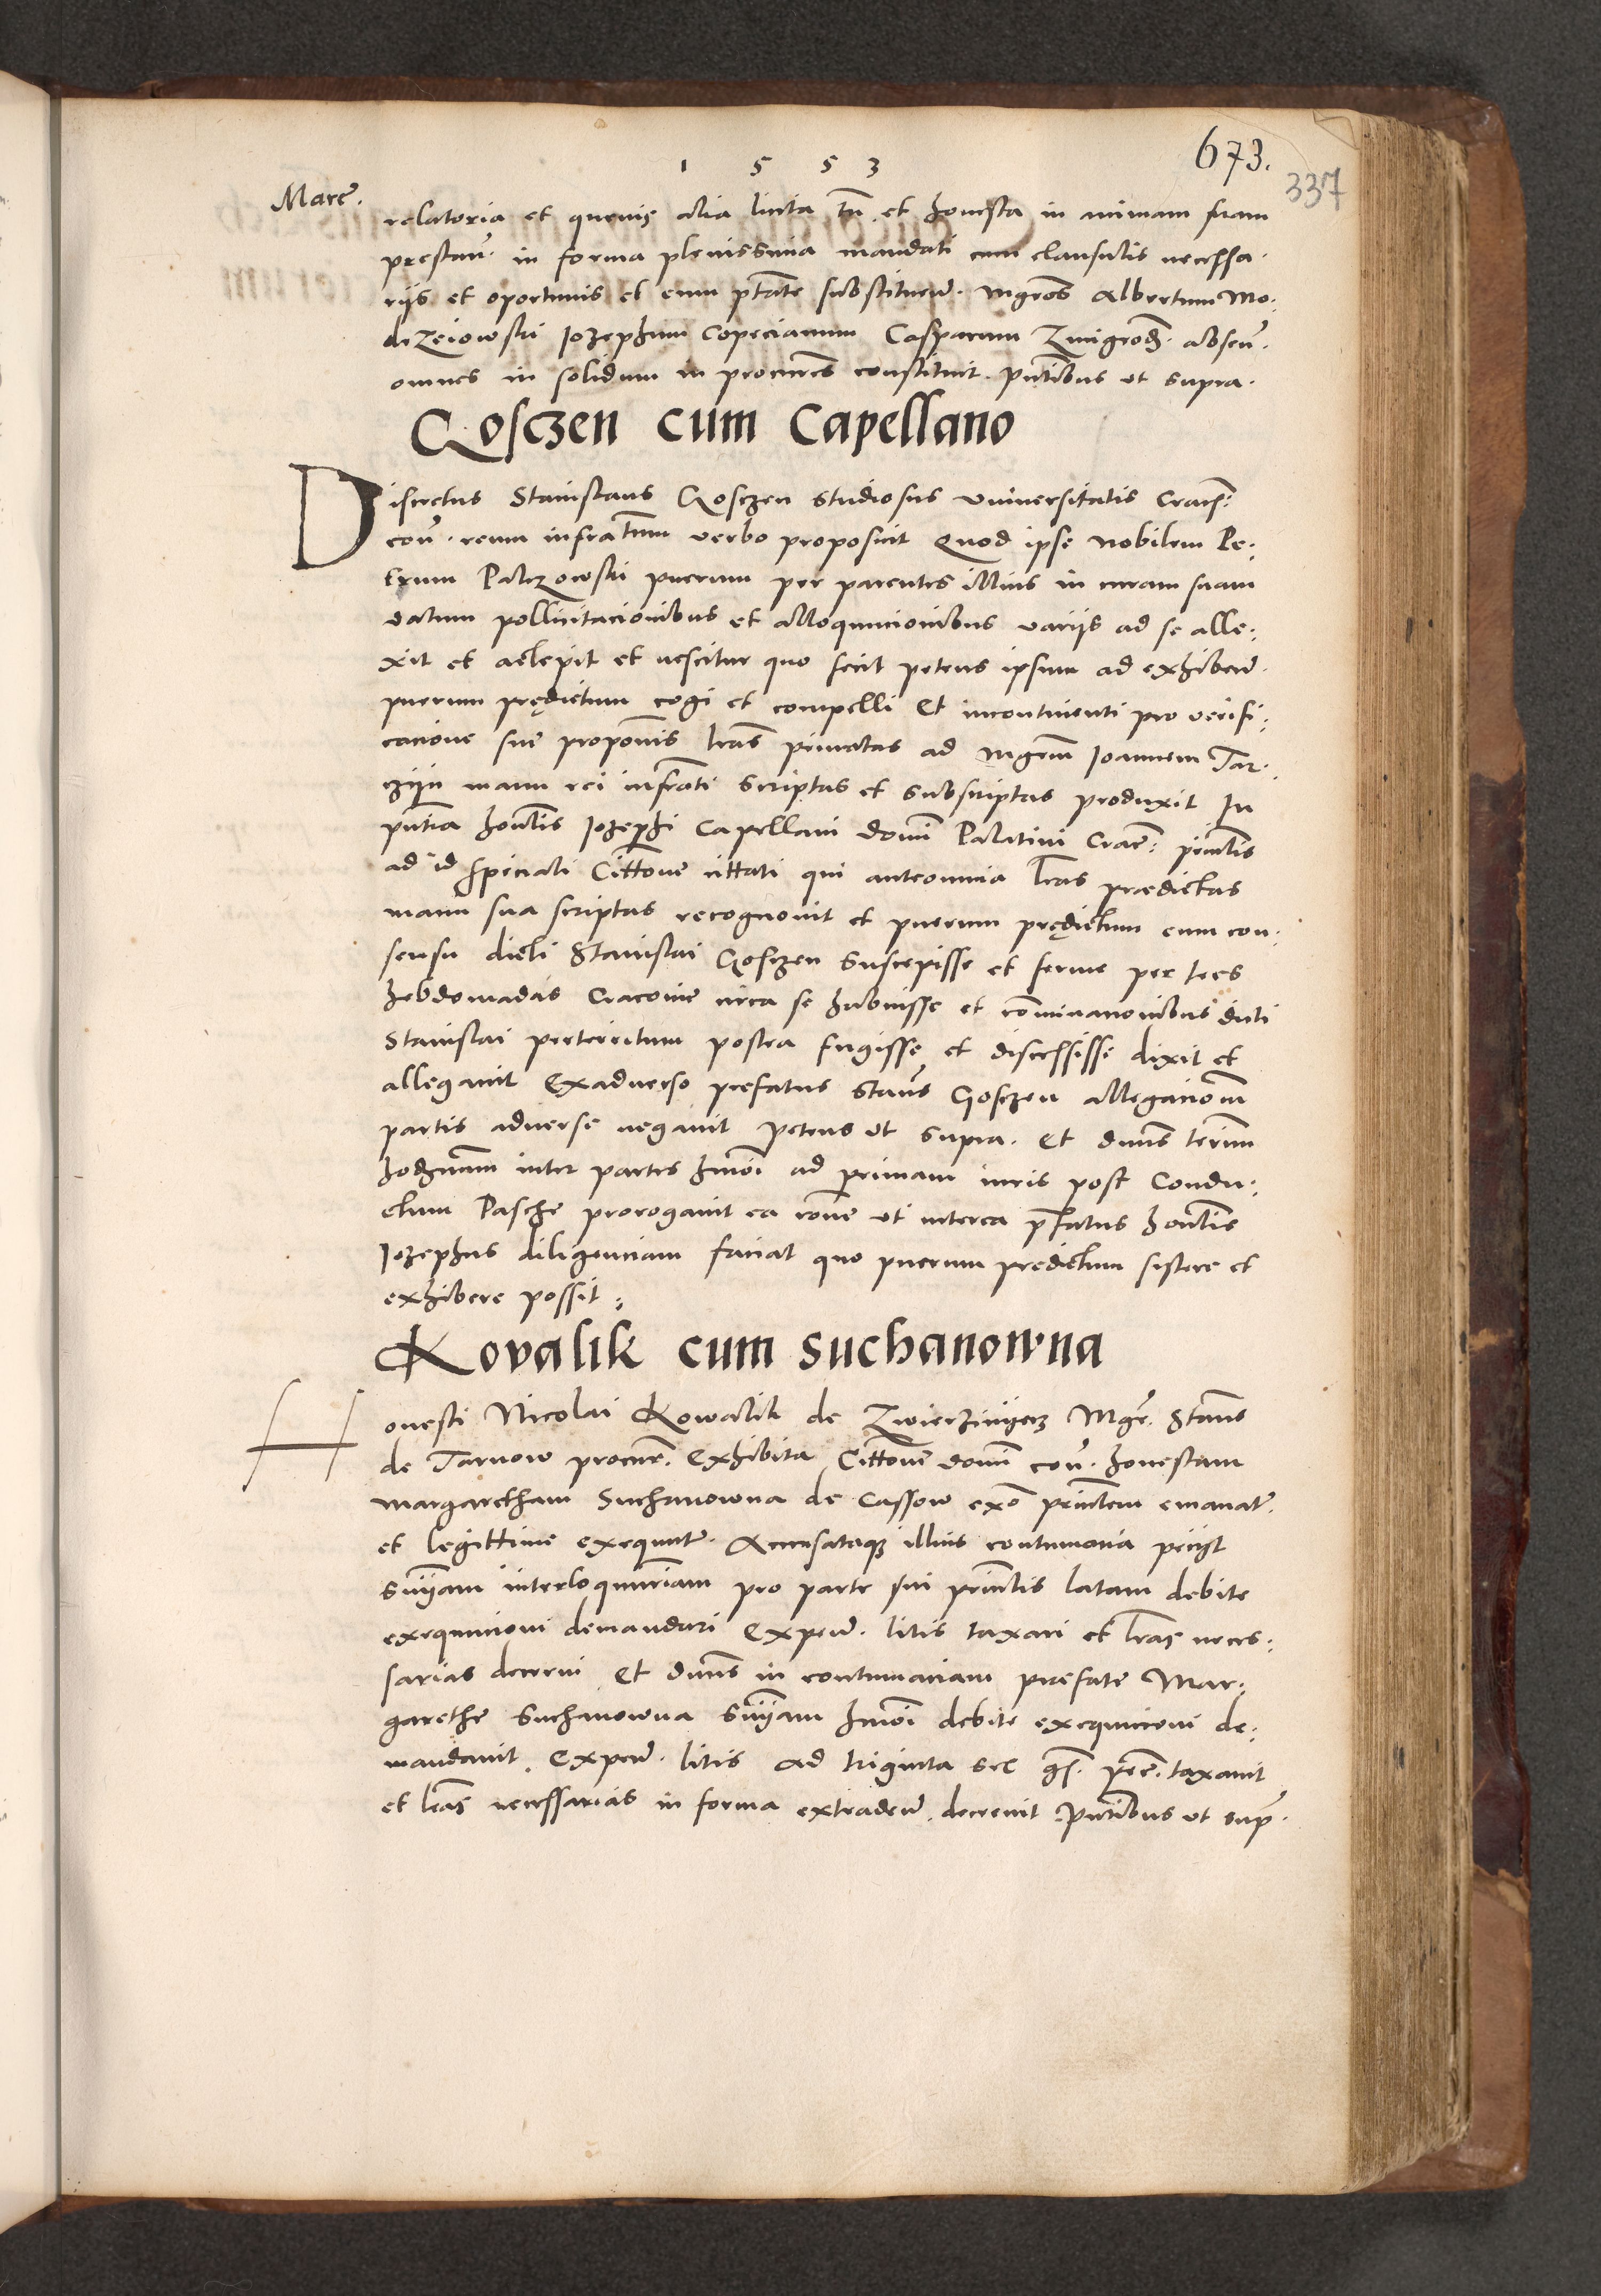 1 5 5 3
673.
337
Marcȷ.
relatoria et quevis alia licita tn̄ et honesta in animam suam
prestan̄. in forma plenissima mandati cum clausulis necessa:
rijs et oportunis et cum ptāte substituen̄. mgr̄os Albertum Mo:
drzeiowski Jozephum Copecianum Casparum Zmigrod. absen̄.
omnes in solidum in procur̄es constituit. pn̄tibus ut supra.
Gosczen cum Capellano
Discretus Stanislaus Gosczen studiosus universitatis Cracn̄:
con̄. reum infratum verbo proposuit Quod ipse Nobilem Pe:
trum Palczowski puerum per parentes illius in curam suam
datum pollicitacionibus et alloqucionibus varijs ad se alle:
xit et accepit et nescitur quo fecit petens ipsum ad exhiben̄.
puerum prędictum cogi et compelli Et incontinenti pro verifi:
cacione sue propōnis lr̄as privatas ad mgrm̄ Joannem Tar:
czijn manu rei infrati scriptas et subscriptas produxit In
pn̄tia hon̄lis Jozephi Capellani domī Palatini Crac̄: prin̄lis
ad id speciali Cittone cittati qui anteomnia lr̄as prædictas
manu sua scriptas recognovit et puerum prędictum cum con:
sensu dicti Stanislai Gosczen suscepisse et ferme per tres
hebdomadas Cracovie circa se habuisse et com̄inacionibus dicti
Stanislai perterritum postea fugisse et discessisse dixit et
allegavit Exadverso prefatus Stan̄s Gosczen allegacionm̄
partis adverse negavit petens ut supra. Et dn̄us ter̄um
hodrnum inter partes hm̄oi ad primam iuris post Condu:
ctum Pasche prorogavit ea ron̄e ut interea pr̄fatus hon̄lis
Jozephus diligenciam faciat quo puerum predictum sistere et
exhibere possit :
Kovalik cum Suchanowna
Honesti Nicolai Kowalik de Zwierzinijecz Mgr̄. Stan̄s
de Tarnow procur̄. Exhibita Cittone domī con̄. honestam
margaretham Suchanowna de Cassow ex̄o prin̄lem emanat̄.
et legittime exequut̄. Accusataqȝ illius contumacia pecijt
Sn̄ijam interloqucr̄iam pro parte sui prin̄lis latam debite
exequucioni demandari Expen̄. litis taxari et lr̄as neces:
sarias decerni Et dn̄us in contumaciam præfate Mar:
garethe Suchanowna Sn̄ijam hm̄oi debite exequucioni de:
mandavit. Expen̄. litis ad triginta sex gs̄. pec̄. taxavit
et lr̄as necessarias in forma extraden̄. decrevit pn̄tibus ut sup̄.